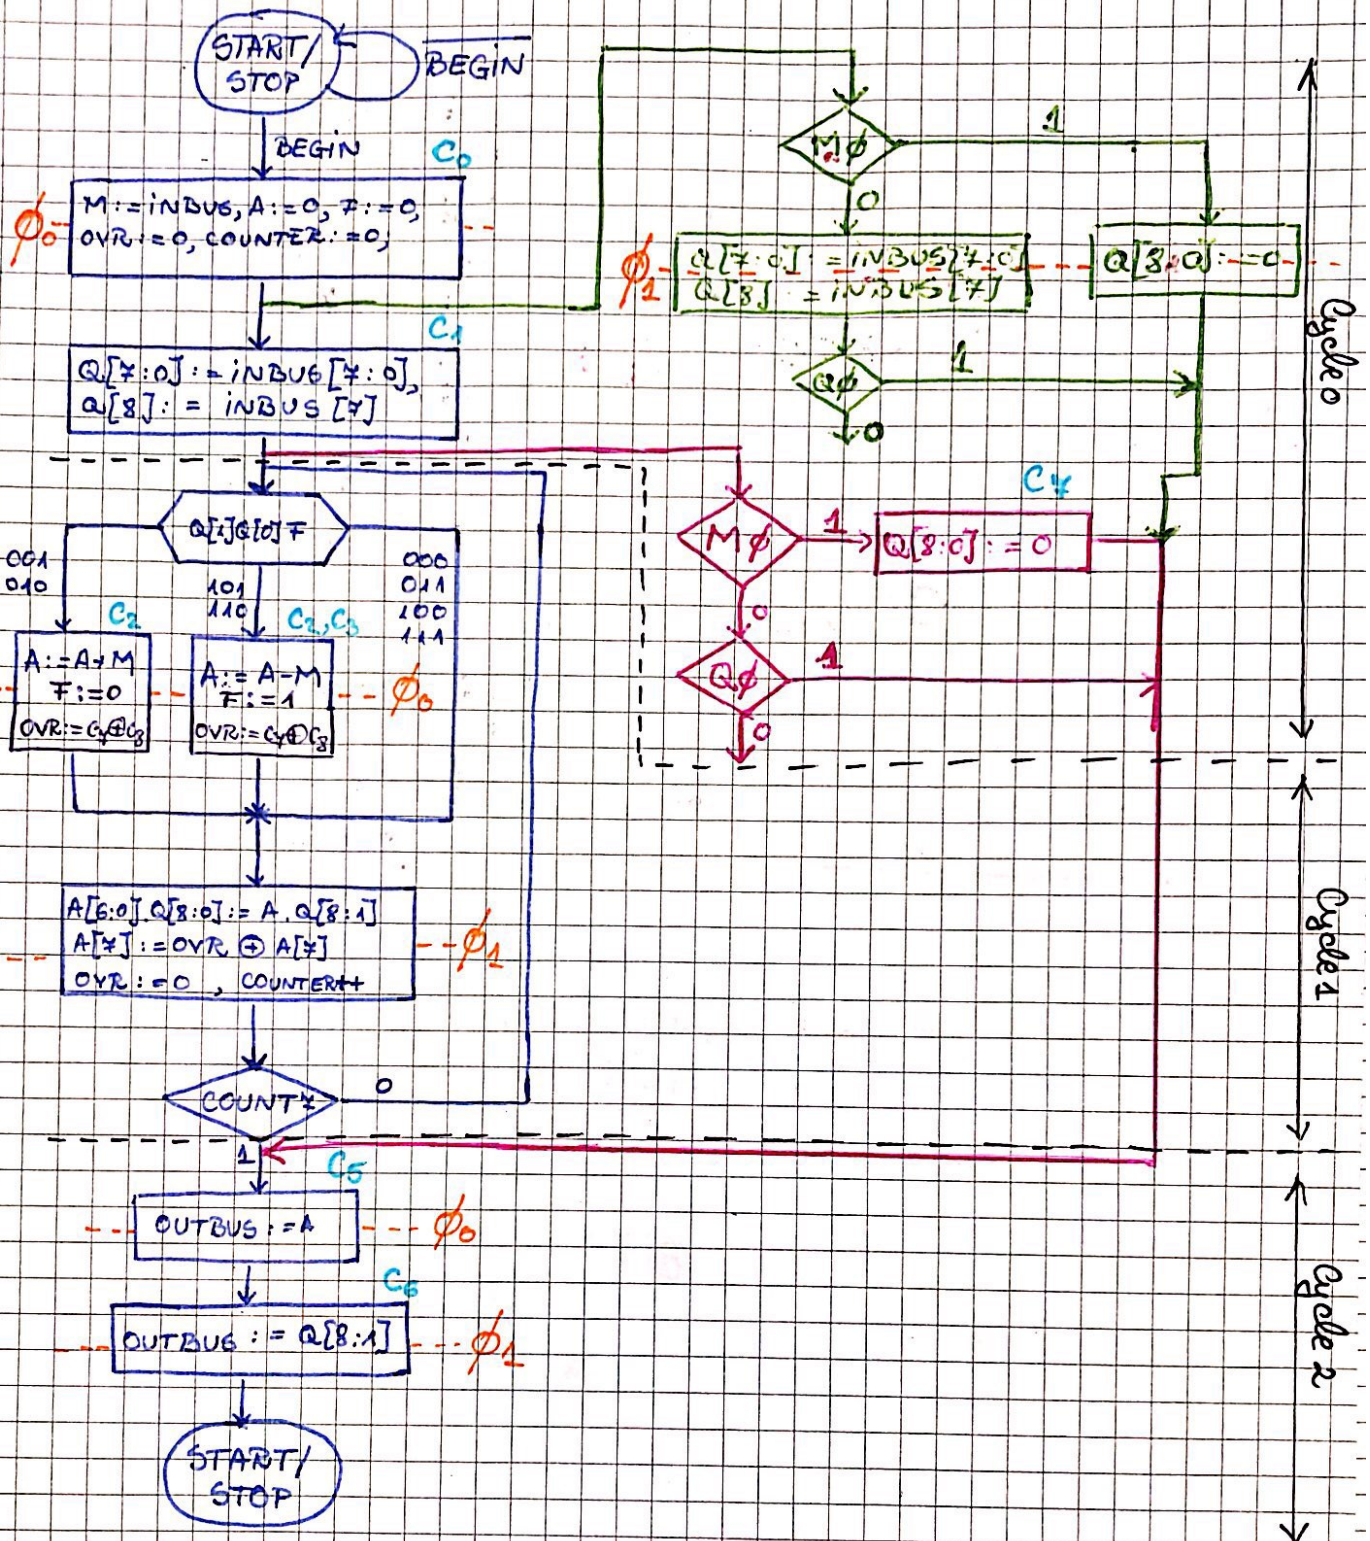 START/
STOP
BEGIN
BEGIN
C0
ϕ0
M:=INBUS, A:=0, F:=0,
OVR:=0, COUNTER:=0,
C1
Q[7:0]:=INBUS[7:0],
Q[8]:= INBUS[7]
Q[1]Q[0]F
001
010
101
110
000
011
100
111
C2
A:=A+M
F:=0
OVR:=C7⊕C8
C2,C3
A:=A-M
F:=1
OVR:=C7⊕C8
ϕ0
A[6:0].Q[8:0]:=A.Q[8:1]
A[7]:=OVR ⊕ A[7]
OVR:=0, COUNTER++
ϕ1
COUNT7
0
1
C5
OUTBUS:=A
ϕ0
C6
OUTBUS:=Q[8:1]
ϕ1
START/
STOP
Mϕ
1
0
ϕ1
Q[7:0]:=INBUS[7:0]
Q[8] =INBUS[7]
Q[8:0]:=0
Qϕ
1
0
C7
Mϕ
1
Q[8:0]:=0
0
Qϕ
1
0
Cycle 0
Cycle 1
Cycle 2